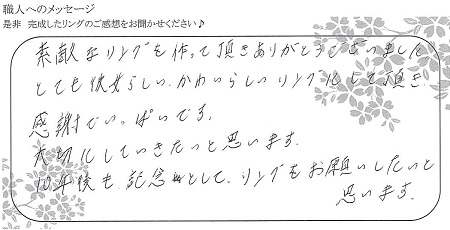 職人へのメッセージ
是非 完成したリングのご感想をお聞かせください♪
素敵なリングを作って頂きありがとうございました
とても彼女らしい、かわいらしいリングにして頂き
感謝でいっぱいです。
大切にしていきたいと思います。
10年後も、記念として、リングをお願いしたいと
思います。